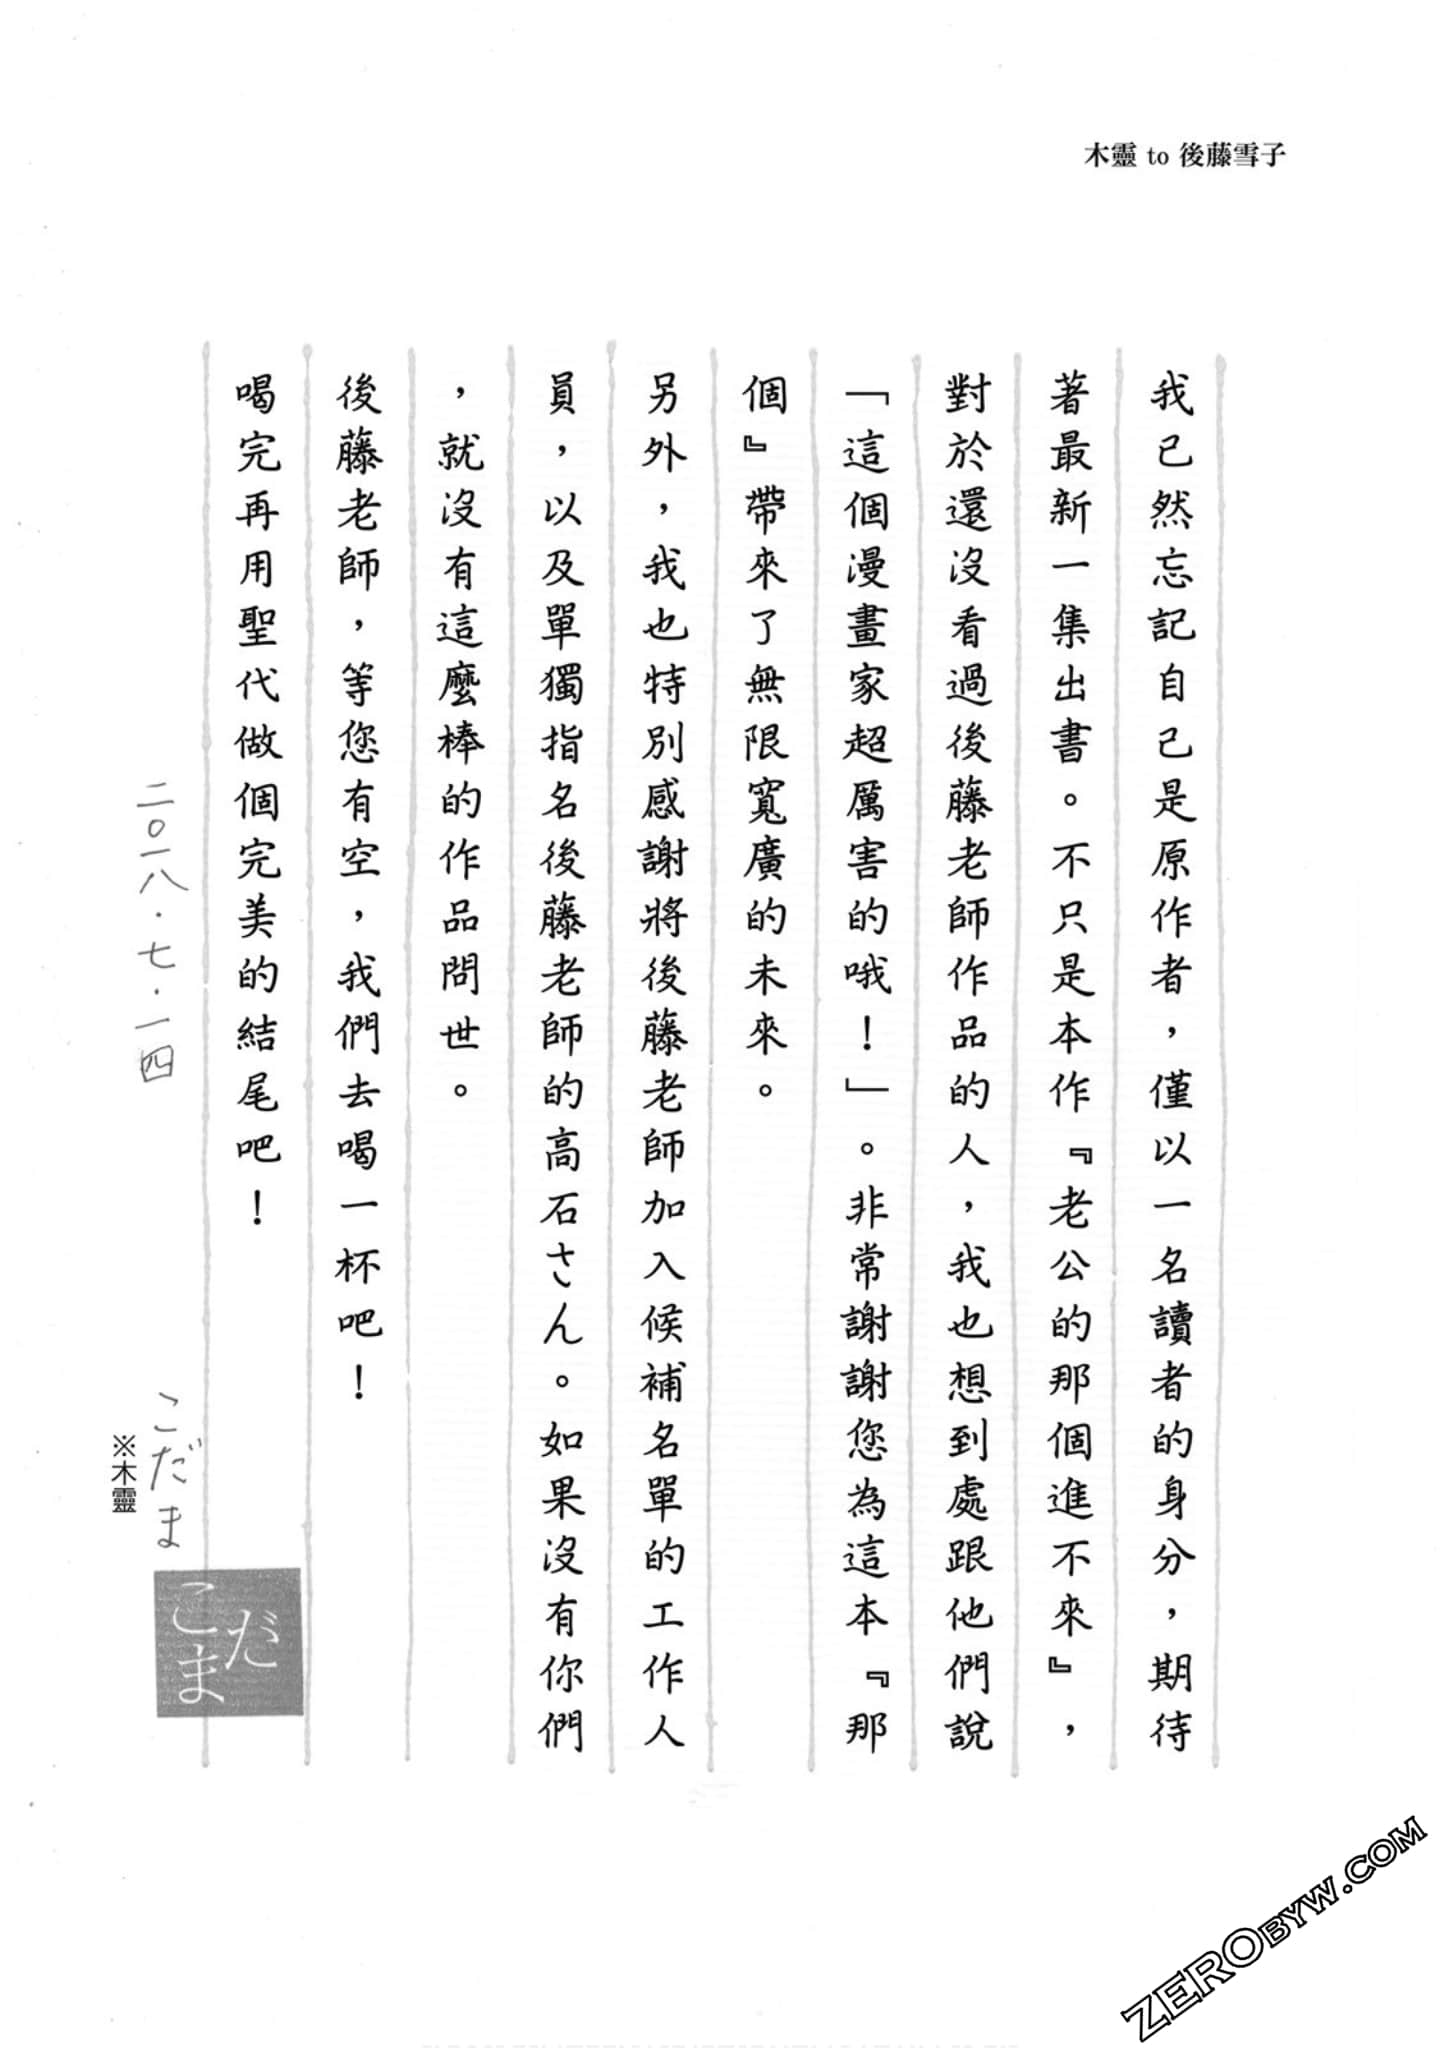 木靈 to 後藤雪子
我已然忘記自己是原作者，僅以一名讀者的身分，期待
著最新一集出書。不只是本作『老公的那個進不來』，
對於還沒看過後藤老師作品的人，我也想到處跟他們說
「這個漫畫家超厲害的哦！」。非常謝謝您為這本『那
個』帶來了無限寬廣的未來。
另外，我也特別感謝將後藤老師加入候補名單的工作人
員，以及單獨指名後藤老師的高石さん。如果沒有你們
，就沒有這麼棒的作品問世。
後藤老師，等您有空，我們去喝一杯吧！
喝完再用聖代做個完美的結尾吧！
二〇一八．七．一四
こだま
※木靈
こだま
ZEROBYW.COM